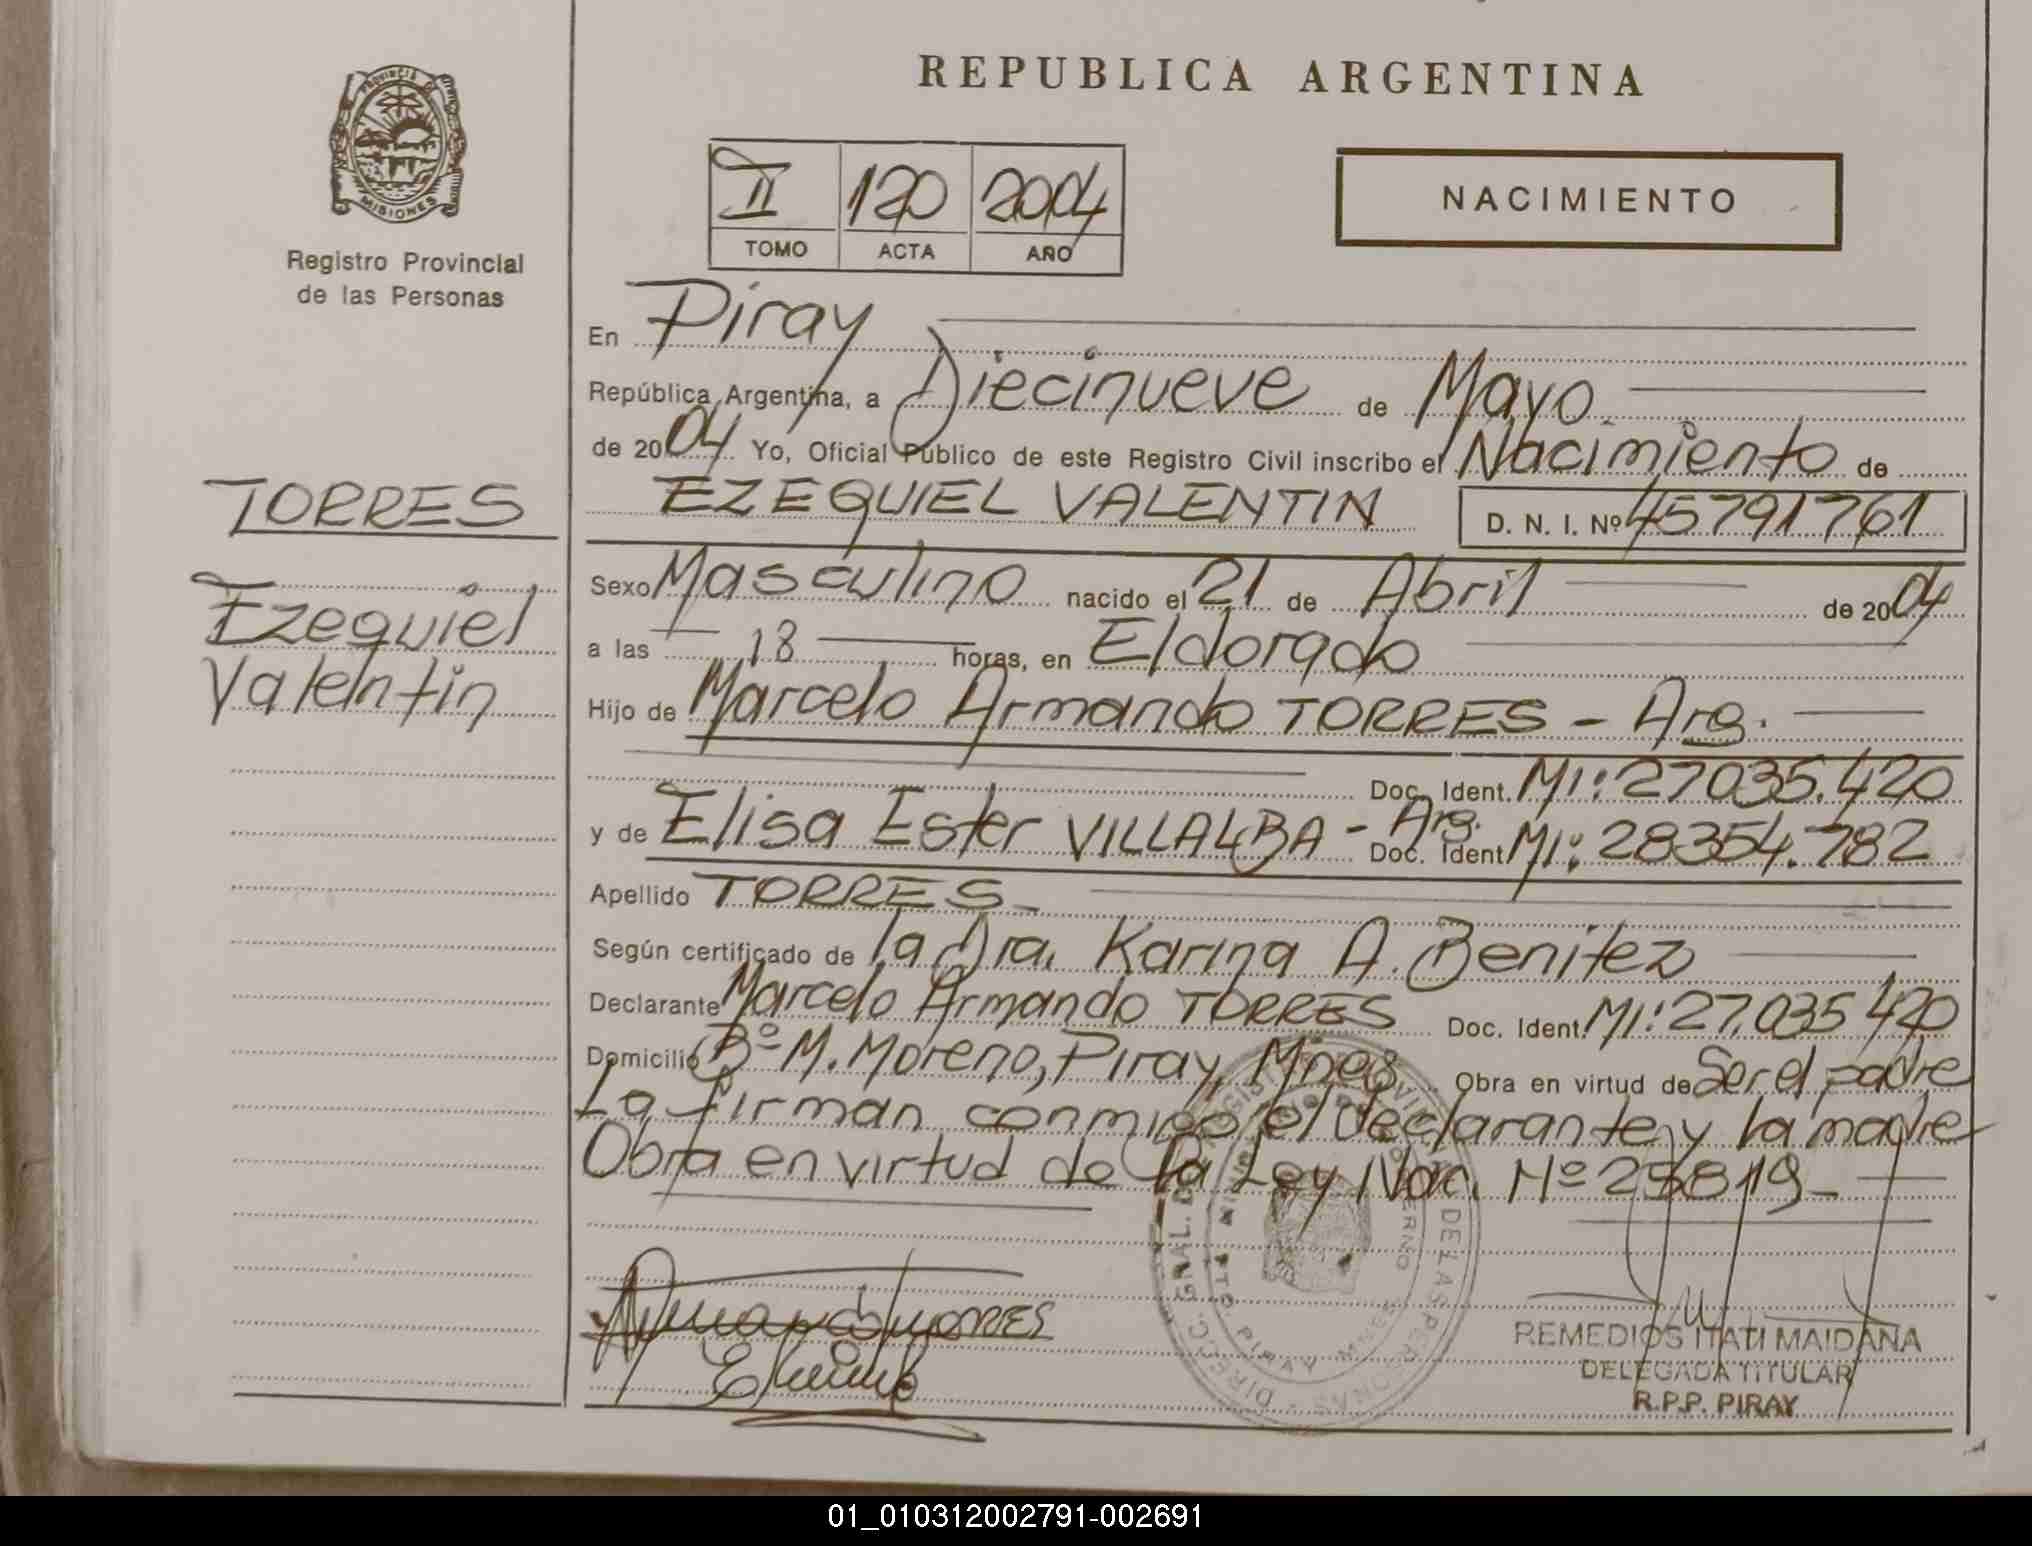 REPUBLICA ARGENTINA
PROVINCIA DE MISIONES
Registro Provincial
de las Personas
II 120 2004
TOMO ACTA AÑO
NACIMIENTO
En Piray
República Argentina, a Diecinueve de Mayo
de 2004 Yo, Oficial Público de este Registro Civil inscribo el Nacimiento de
TORRES
EZEQUIEL VALENTIN D. N. I. Nº 45791761
Ezequiel
Valentin
Sexo Masculino nacido el 21 de Abril de 2004
a las 18 horas, en Eldorado
Hijo de Marcelo Armando TORRES - Arg.
Doc. Ident. MI: 27035.420
y de Elisa Ester VILLALBA - Arg. Doc. Ident MI: 28354.782
Apellido TORRES
Según certificado de la Dra. Karina A. Benitez
Declarante Marcelo Armando TORRES Doc. Ident. MI: 27.035 420
Domicilio Bº M. Moreno, Piray, Mnes Obra en virtud de Ser el padre
La firman conmigo el declarante y la madre
Obra en virtud de la Ley Nac. Nº 25819_
DIRECC. GRAL. DEL REGISTRO PROVINCIAL DE LAS PERSONAS
PTO. PIRAY MNES
REMEDIOS ITATI MAIDANA
DELEGADA TITULAR
R.P.P. PIRAY
01_010312002791-002691